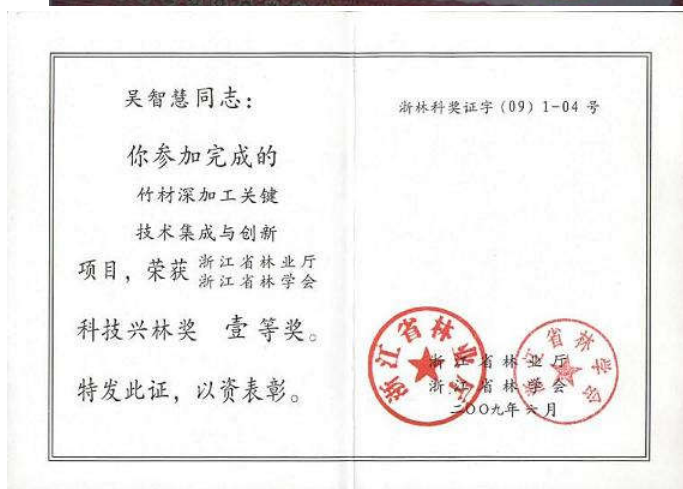 吴智慧同志：
你参加完成的
竹材深加工关键
技术集成与创新
项目，荣获 浙江省林业厅
浙江省林学会
科技兴林奖 壹等奖。
特发此证，以资表彰。
浙林科奖证字（09）1-04 号
浙江省林业厅
浙江省林学会
二〇〇九年六月
浙江省林业厅
浙江省林学会